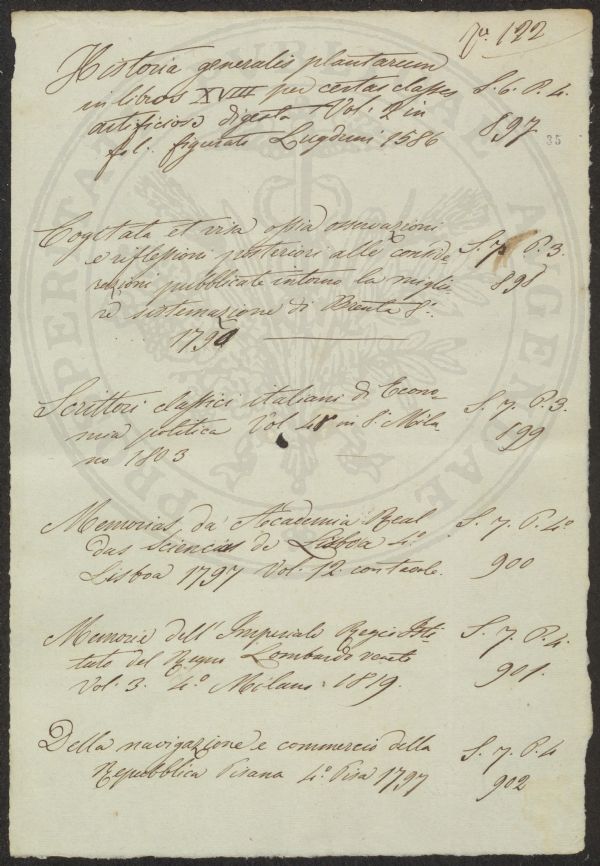 No. 122
Historia generalis plantarum
in libros XVIII per certas classes
artificiose digesta Vol. 2 in
fol. figurato Lugduni 1586
S. 6. P. 4.
897
35
Cogitata et visa ossia osservazioni
e riflessioni posteriori alle conside-
razioni pubblicate intorno la miglio-
re sistemazione di Brenta 8.
1790
S. 7. P. 3.
898
Scrittori classici italiani di Econo-
mia politica Vol. 48 in 8. Mila-
no 1803
S. 7. P. 3.
899
Memorias da Academia Real
das sciencias de Lisboa 4.o
Lisboa 1797 Vol. 12. con tavole.
S. 7. P. 4.o
900
Memorie dell' Imperiale Regio Isti-
tuto del Regno Lombardo veneto
Vol. 3. 4.o Milano: 1819.
S. 7. P. 4.
901.
Della navigazione e commercio della
Repubblica Pisana 4.o Pisa 1797
S. 7. P. 4
902